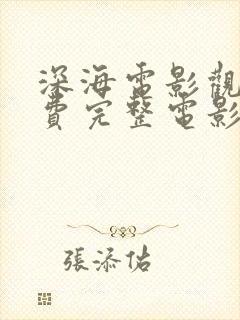 深海電影觀
費完整電影
張添佑